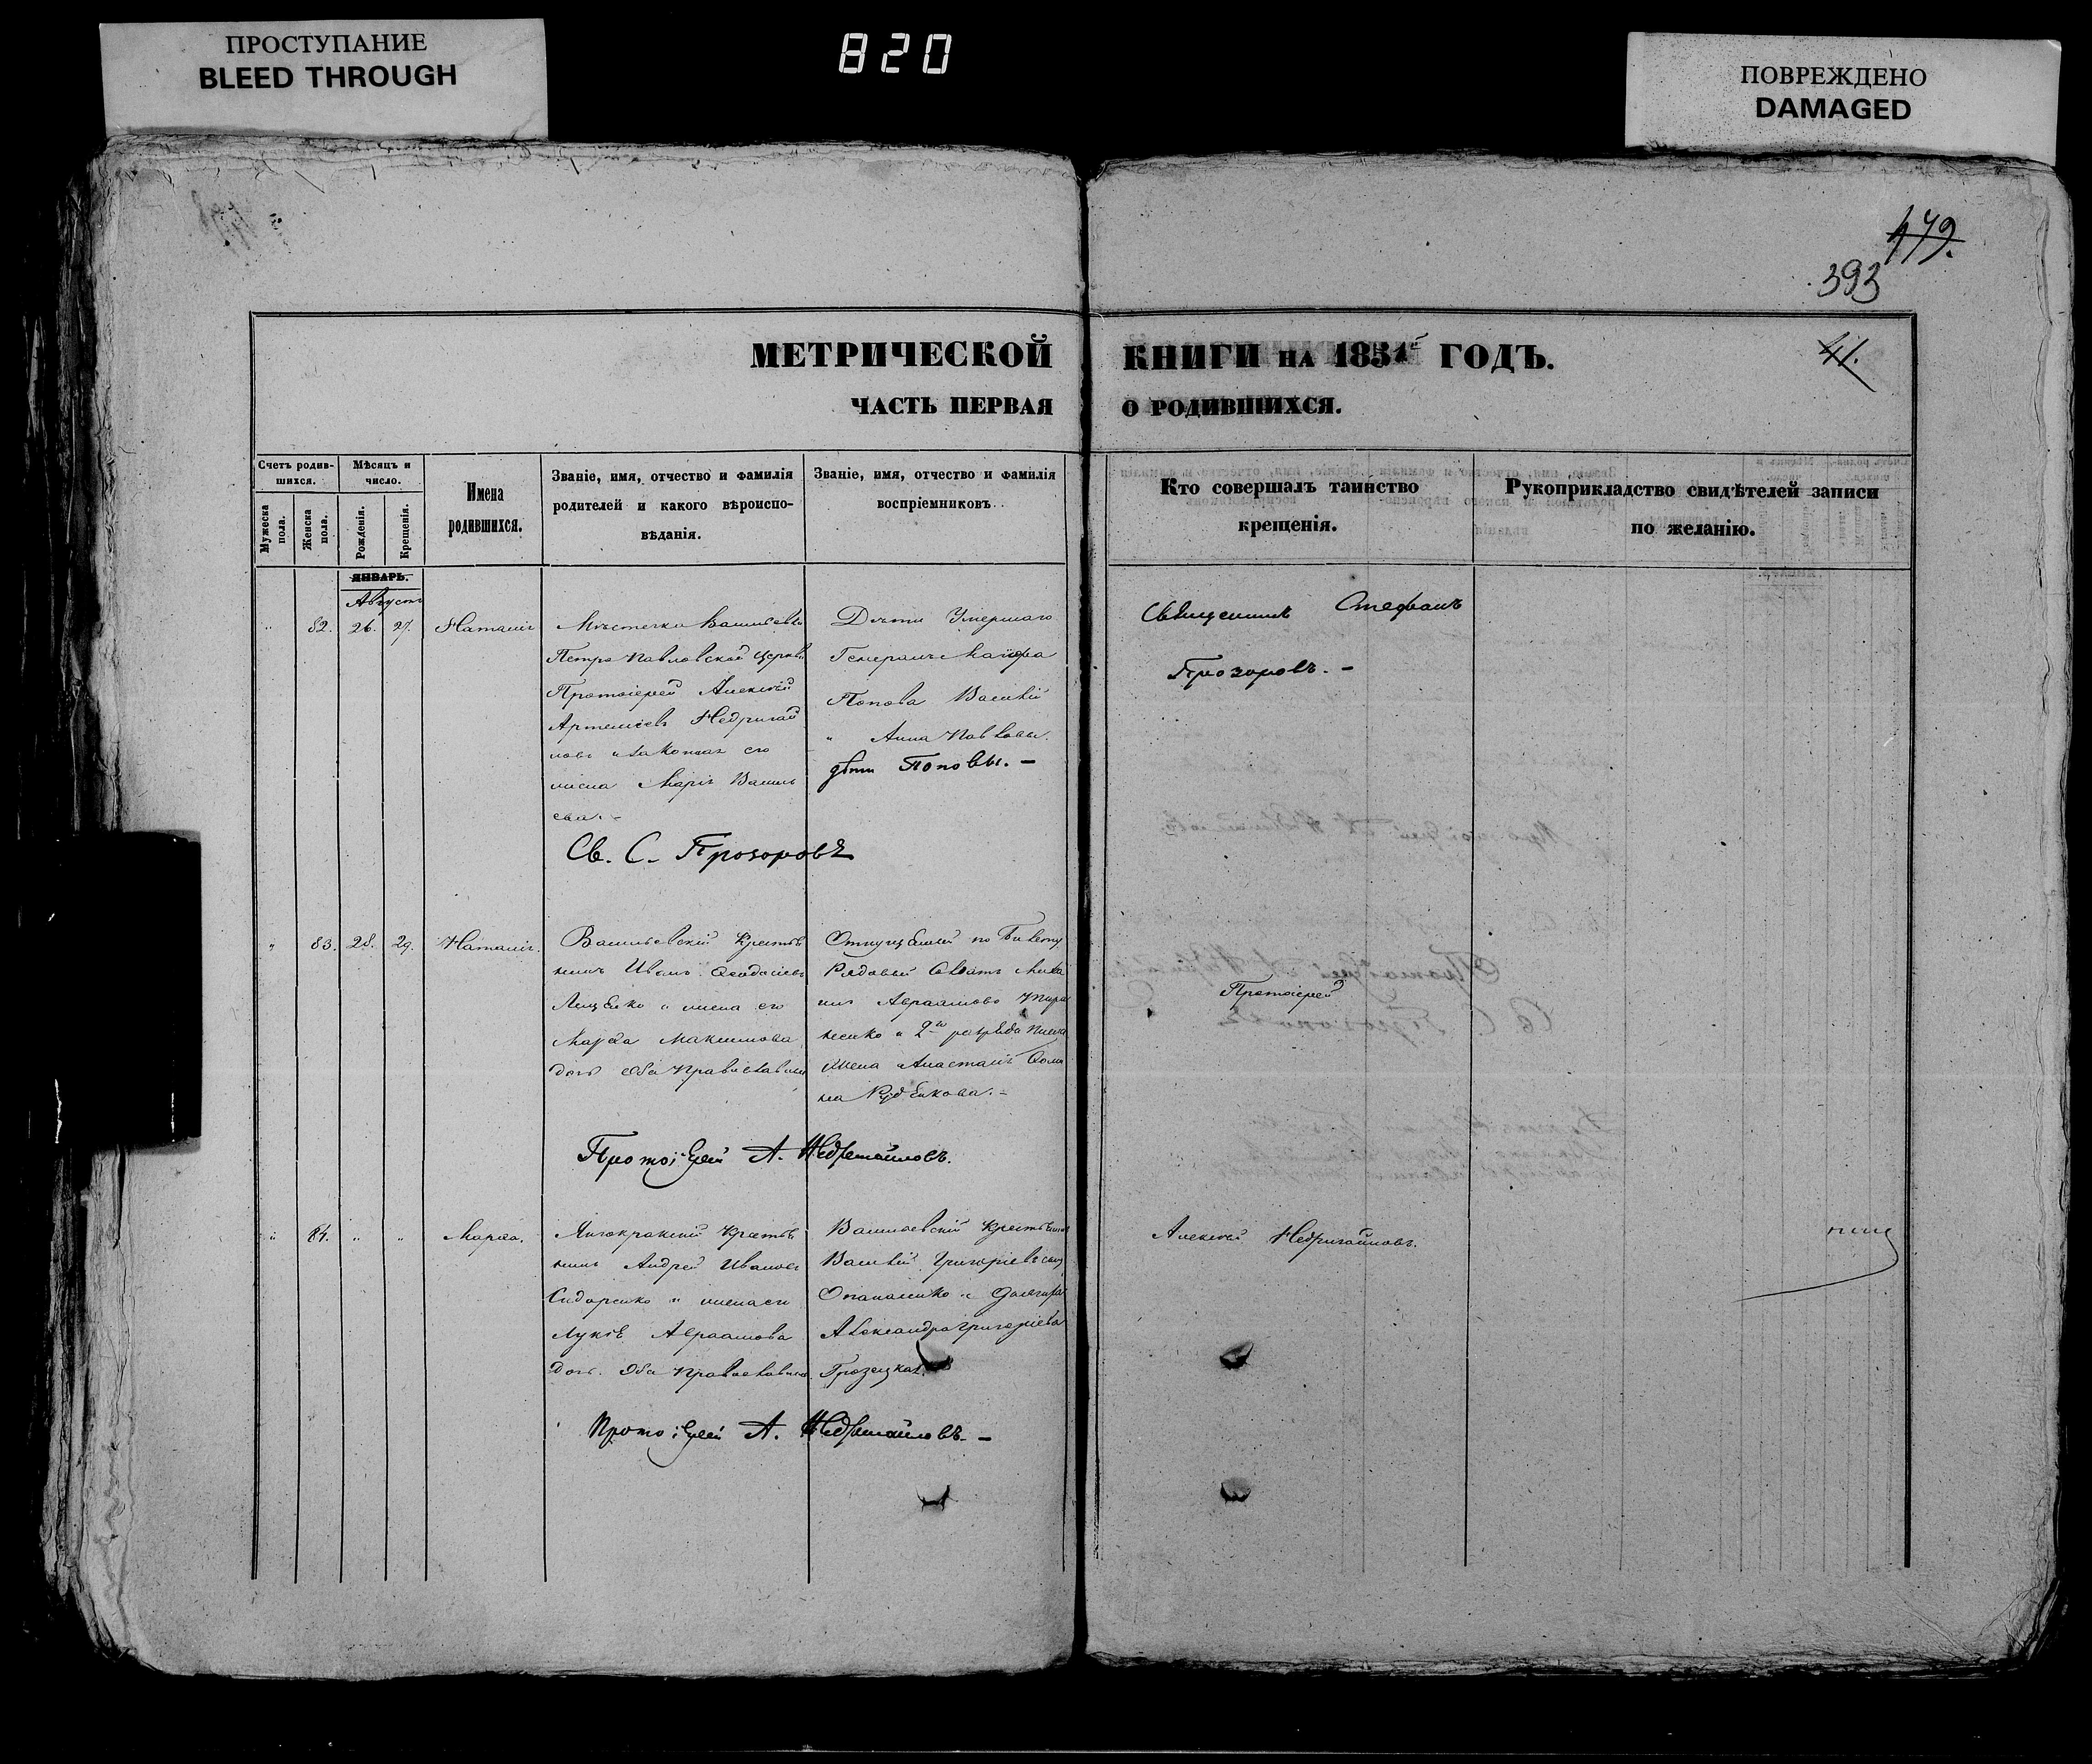 ПРОСТУПАНИЕ
BLEED THROUGH
820
ПОВРЕЖДЕНО
DAMAGED
479.
393
41.
МЕТРИЧЕСКОЙ КНИГИ НА 1851й ГОДЪ.
ЧАСТЬ ПЕРВАЯ О РОДИВШИХСЯ.
Счетъ родив-
шихся.
Мужеска пола.
Женска пола.
Мѣсяцъ и
число.
Рожденія.
Крещенія.
Имена
родившихся.
Званіе, имя, отчество и фамилія
родителей и какого вѣроиспо-
вѣданія.
Званіе, имя, отчество и фамилія
воспріемниковъ.
Кто совершалъ таинство
крещенія.
Рукоприкладство свидѣтелей записи
по желанію.
ЯНВАРЬ.
Августъ
" 82. 26. 27. Наталія
Мѣстечка Васильевки
Петро Павловской Церкви
Протоіерей Алексѣй
Артеміевъ Недригай
ловъ и законная его
жена Марія Василь
ева. -
Дѣти Умершаго
Генералъ Маіора
Попова Василій
и Анна Павловы.
дѣти Поповы. -
Священникъ Стефанъ
Прозоровъ. -
Св. С. Прозоровъ
" 83. 28. 29. Наталія.
Васильевскій Крестья
нинъ Иванъ Феодосіевъ
Лещенко и жена его
Марфа Максимова
дочь Оба Православны
Отпущенный по билету
Рядовый Михаи
Авраамовъ
и 2го разряда
жена Анастасія Фоми
на Руденкова. -
Протоіерей
Протоіерей А. Недригайловъ.
" 84. " " Марфа.
Крестья
нинъ Андрей Ивановъ
Сидоренко и жена его
Авраамова
дочь. Оба Православны.
Васильевскій Крестьянинъ
Василій Григоріевъ сынъ
Опанасенко и
Александра Григоріева
Грозецкая.
Алексѣй Недригайловъ.
Протоіерей А. Недригайловъ. -